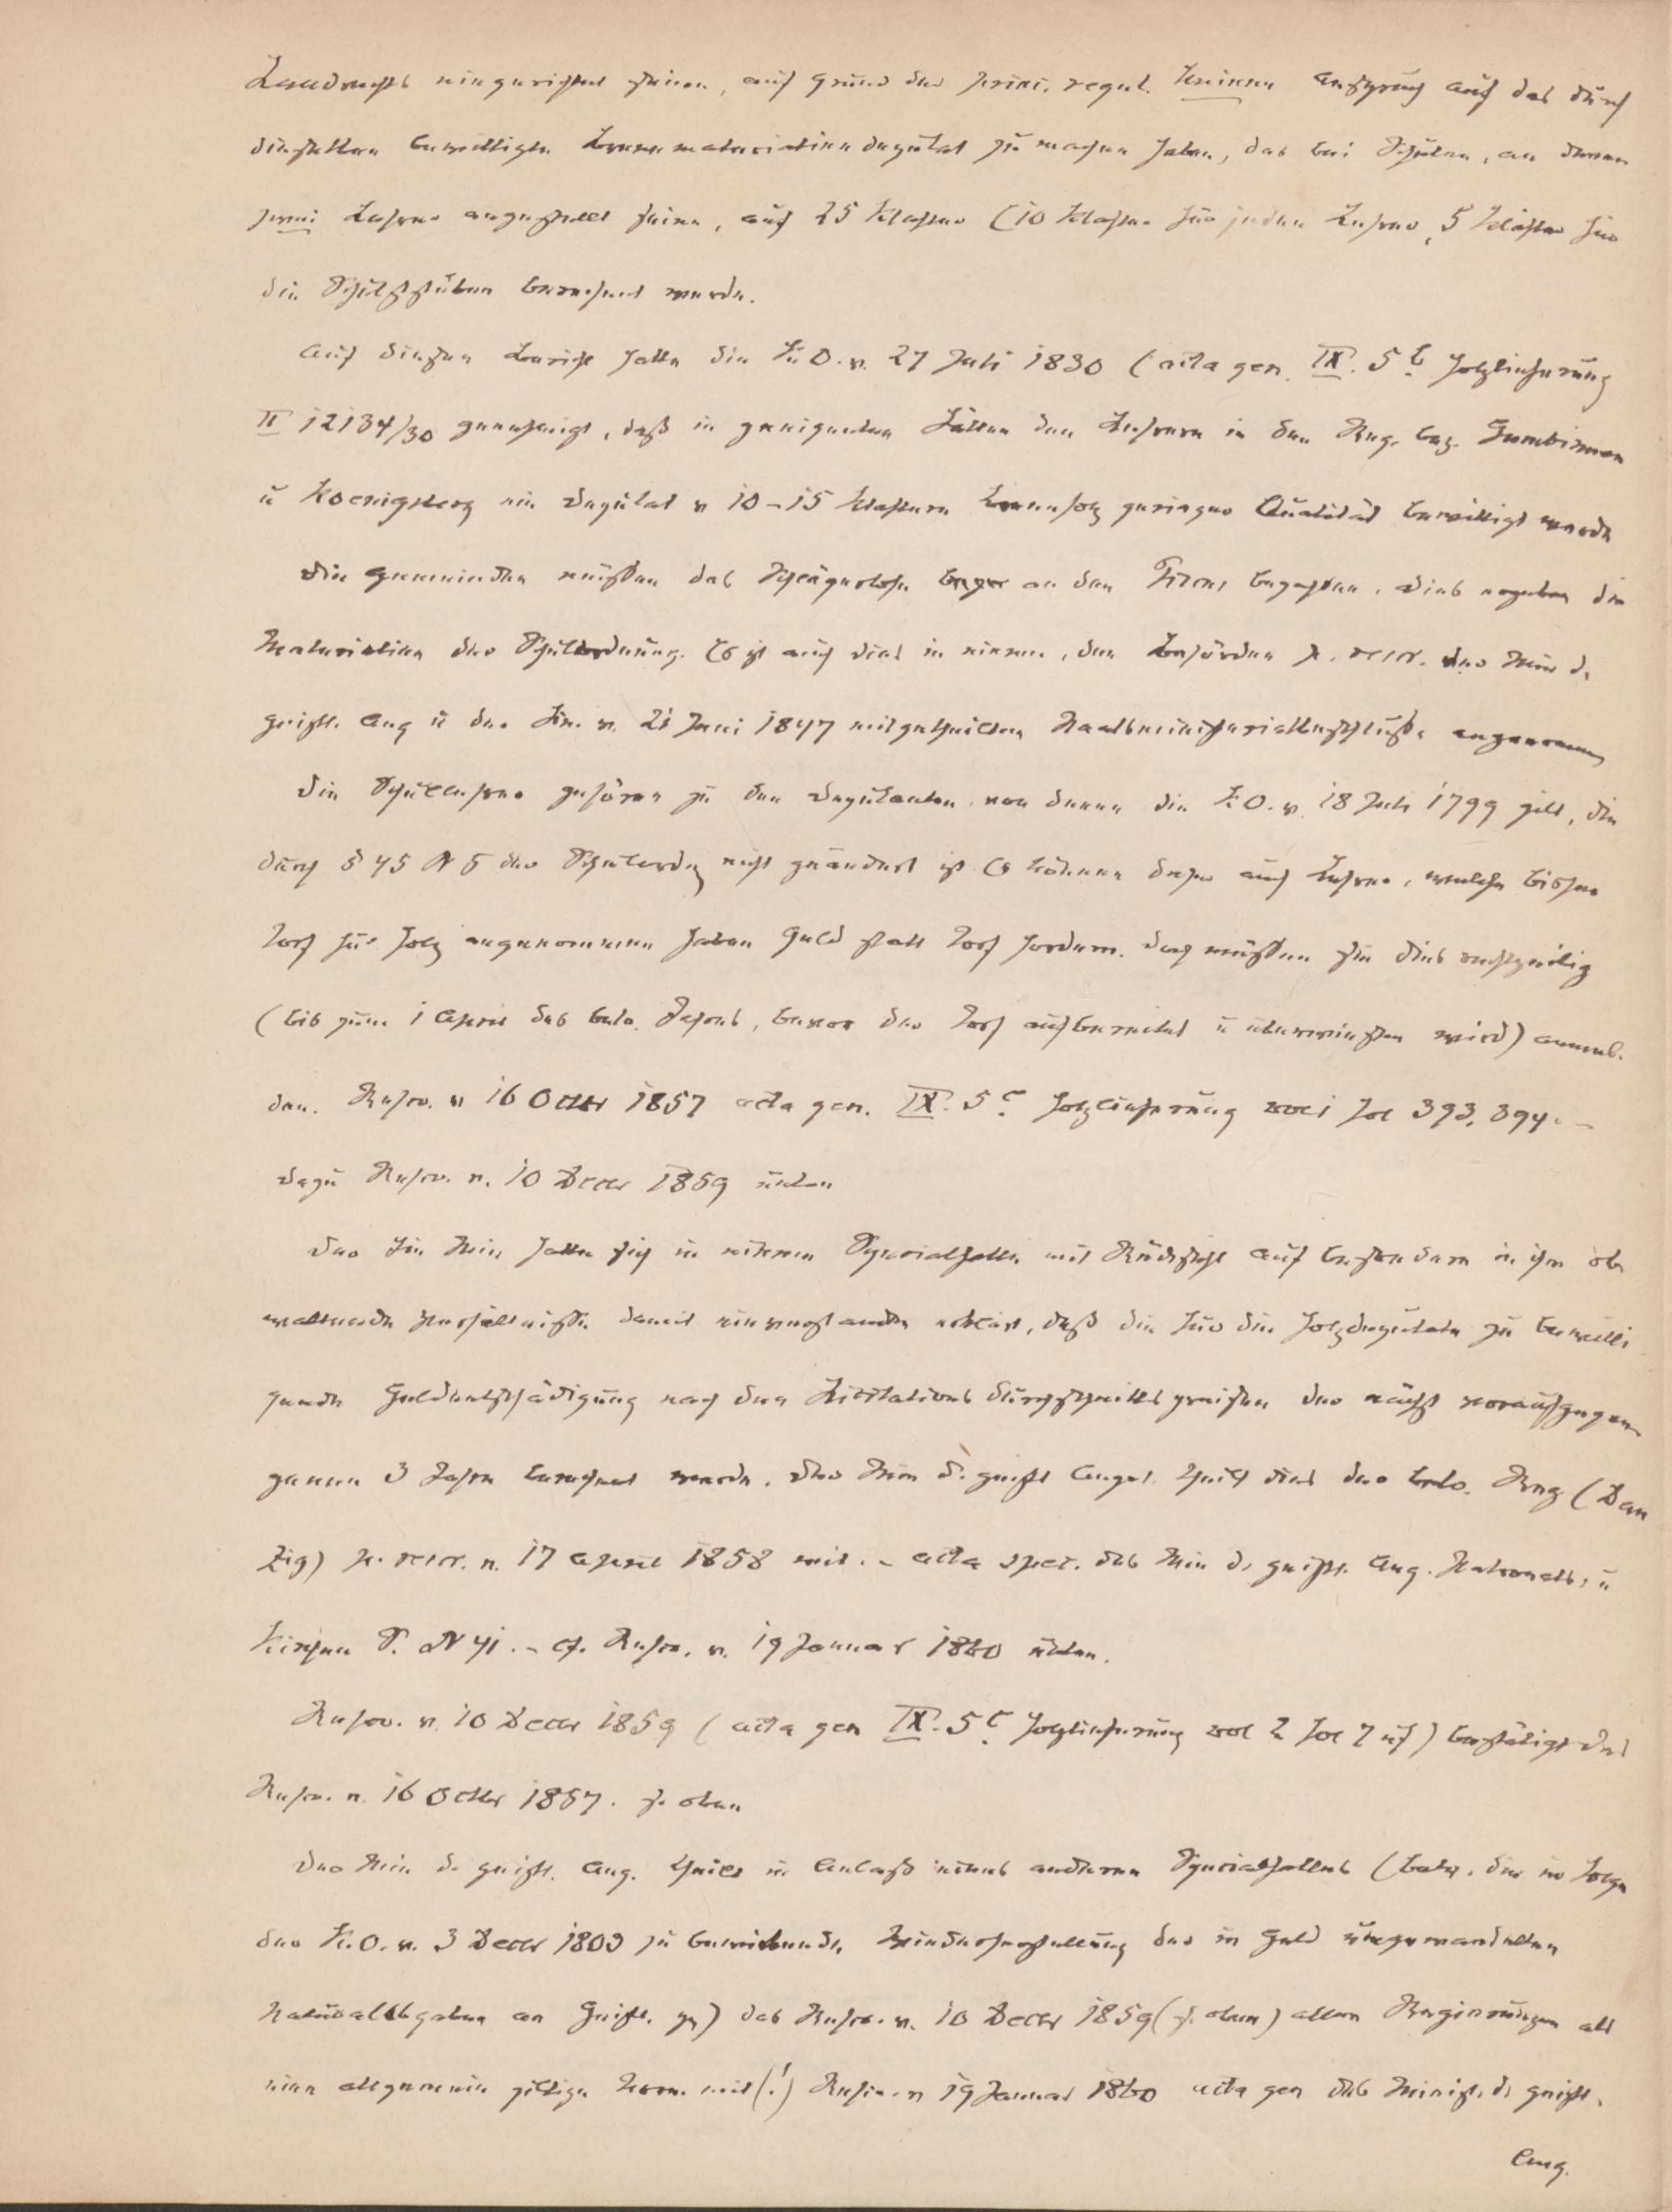 Landrechts eingerichtet seien, auf Grund des princ. regul. keinen Anspruch auf das durch
dieselben bewilligte Brennmaterialiendeputat zu machen haben, das bei Schulen, an denen
zwei Lehrer angestellt seien, auf 25 Klafter (10 Klafter für jeden Lehrer, 5 Klafter für
die Schulstuben berechnet werde.
Auf diesen Bericht hatte die K.O. v. 27 Juli 1830 (acta gen. IX. 5 b Holzlieferung
II 12134/30 genehmigt, daß in geeigneten Fällen den Lehrern in den Reg. bez. Gumbinnen
u Koenigsberg ein Deputat v 10-15 Klaftern Brennholz geringer Qualität bewilligt werde
Die Gemeinden müssen das Schlägerlohn an den Fiscus bezahlen. Dies ergeben die
Materialien der Schulordnung. Es ist auch dies in einem, den Behörden p. rescr. der Min d.
geistl. Ang u der Fin. v. 21 Juni 1847 mitgetheilten Staatsministerialbeschlusse angenommen
Die Schullehrer gehören zu den Deputanten von denen die K.O. v. 18 Juli 1799 gilt, die
durch § 45 N 5 der Schulordg nicht geändert ist Es können daher auch Lehrer, welche bisher
Torf für Holz angenommen haben Geld statt Torf fordern. Doch müssen sie dies rechtzeitig
(bis zum 1 April des betr. Jahres, bevor der Torf aufbereitet u überwiesen wird) anmel-
den. Rescr. v 16 Octbr 1857 acta gen. IX. 5 c Holzlieferung vol 1 fol 393, 394. -
dazu Rescr. v. 10 Decbr 1859 unten
Der Fin Min hatte sich in einem Specialfalle mit Rücksicht auf besondere in ihm ob-
waltende Verhältnisse damit einverstanden erklärt, daß die für die Holzdeputate zu bewilli-
gende Geldentschädigung nach den Licitations durchschnittspreisen der nächst voraufgegan-
genen 3 Jahre berechnet werde. Der Min d. geistl Angel. theilt dies der betr. Reg (Dan
zig) p. rescr. v. 17 April 1858 mit. - acta spec. des Min d. geistl. Ang. Patronats, u
Kirchen N 41. - cf. Rescr. v. 19 Januar 1860 unten.
Rescr. v. 10 Decbr 1859 (acta gen IX. 5 c Holzlieferung vol 2 fol 7 uf) bestätigt das
Rescr. v. 16 Octbr 1857. s. oben
Der Min d. geistl. Ang. theilt in Anlaß eines anderen Specialfalles (betr. die in Folge
der K.O. v. 3 Decbr 1809 zu bewirkende Wiederherstellung der in Geld umgewandelten
Naturalabgaben an Geistl. pp) das Rescr. v. 10 Decbr 1859 (s. oben) allen Regierungen als
eine allgemein giltige Norm mit (!) Rescr. v 19 Januar 1860 acta gen des Minist. d. geistl.
Ang.